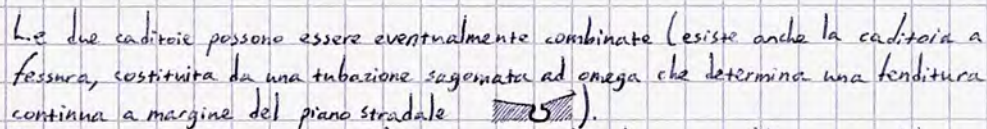 Le due caditoie possono essere eventualmente combinate (esiste anche la caditoia a
fessura, costituita da una tubazione sagomata ad omega che determina una fenditura
continua a margine del piano stradale ).